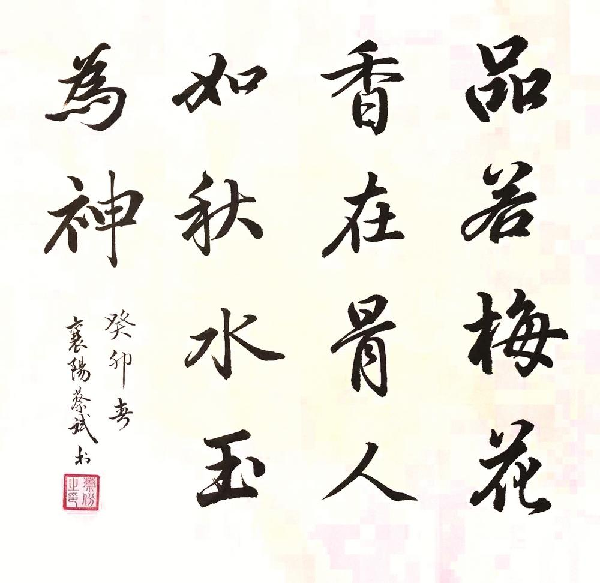 品若梅花
香在骨人
如秋水玉
為神
癸卯春
襄陽蔡斌書